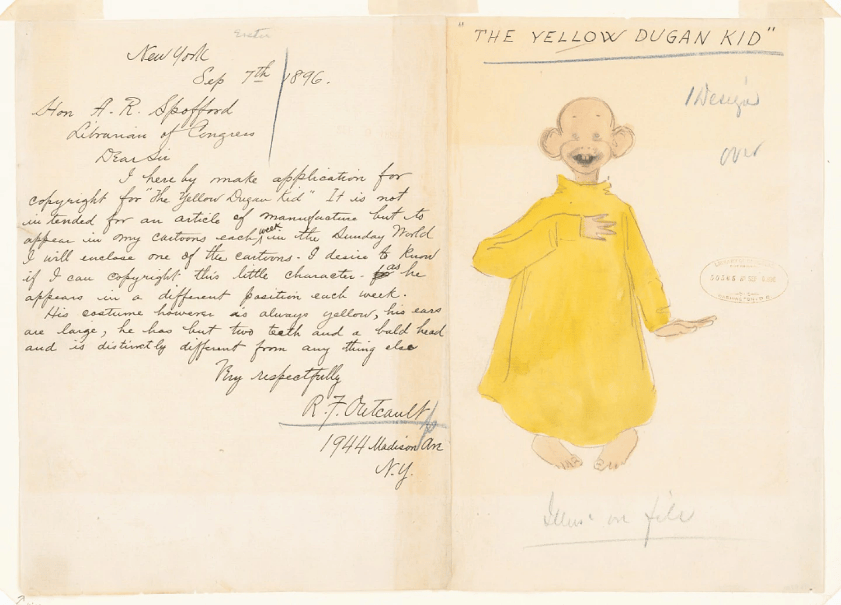 Enter
New York
Sep 7th 1896.
Hon A. R. Spofford
Librarian of Congress
Dear Sir
I here by make application for
copyright for "The Yellow Dugan Kid" It is not
intended for an article of manufacture but to
appear in my cartoons each week in the Sunday World
I will enclose one of the cartoons. I desire to know
if I can copyright this little character - as he
appears in a different position each week.
His costume however is always yellow, his ears
are large, he has but two teeth and a bald head
and is distinctly different from any thing else
Very respectfully
R. F. Outcault
1944 Madison Av
N.Y.
"THE YELLOW DUGAN KID"
1 Design
over
Illus. on file